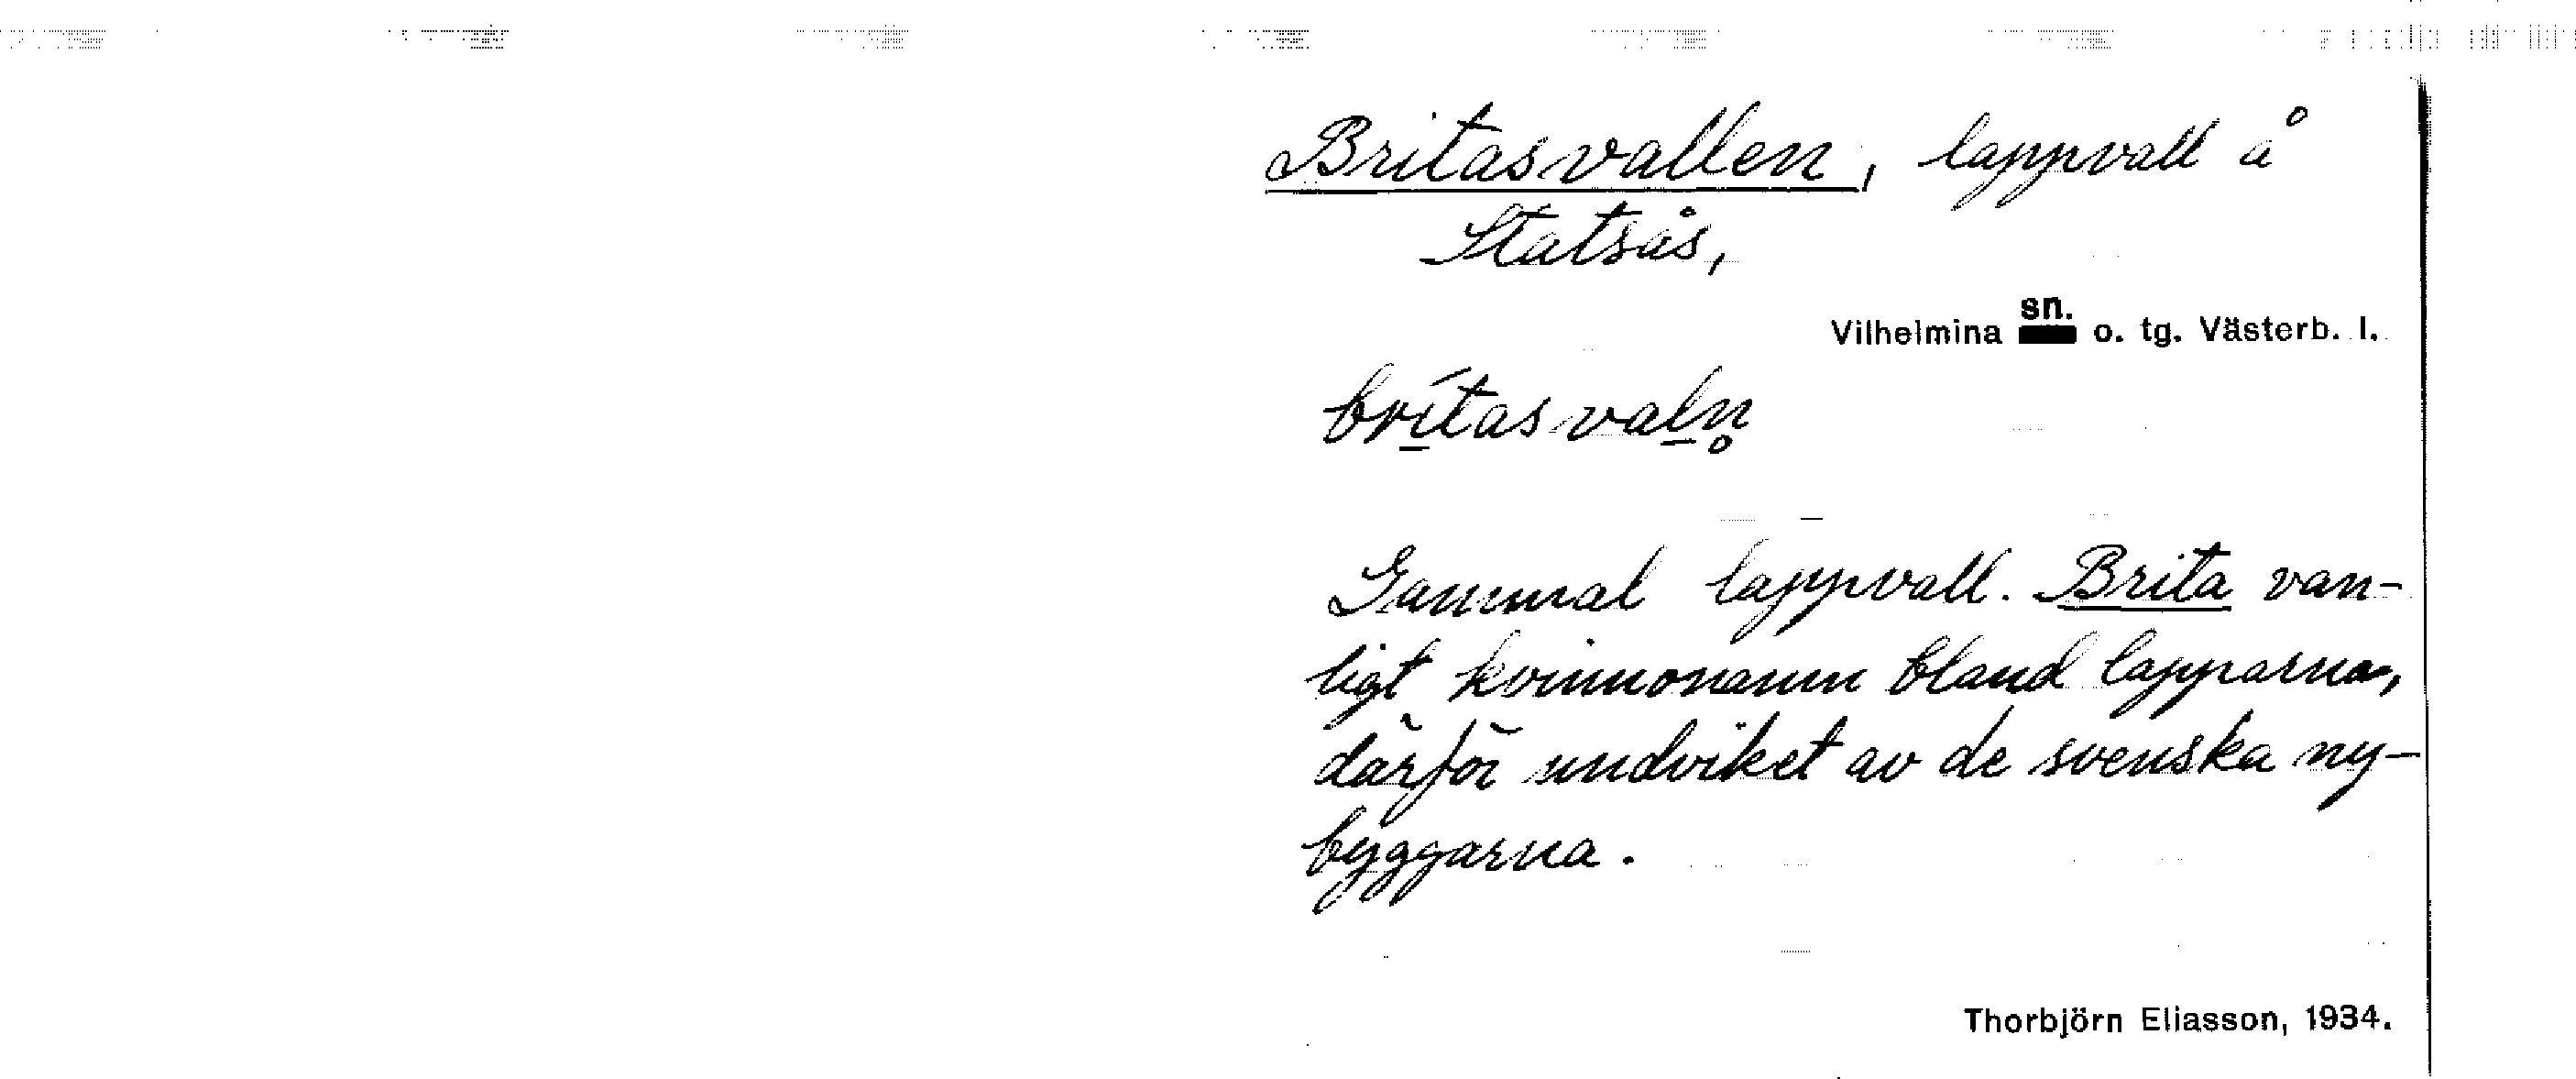 Britasvallen, lappvall å
Statsås,
Vilhelmina sn. o. tg. Västerb. l.
brítasvaln̥
Gammal lappvall. Brita van-
ligt kvinnonamn bland lapparna,
därför undviket av de svenska ny-
byggarna.
Thorbjörn Eliasson, 1934.